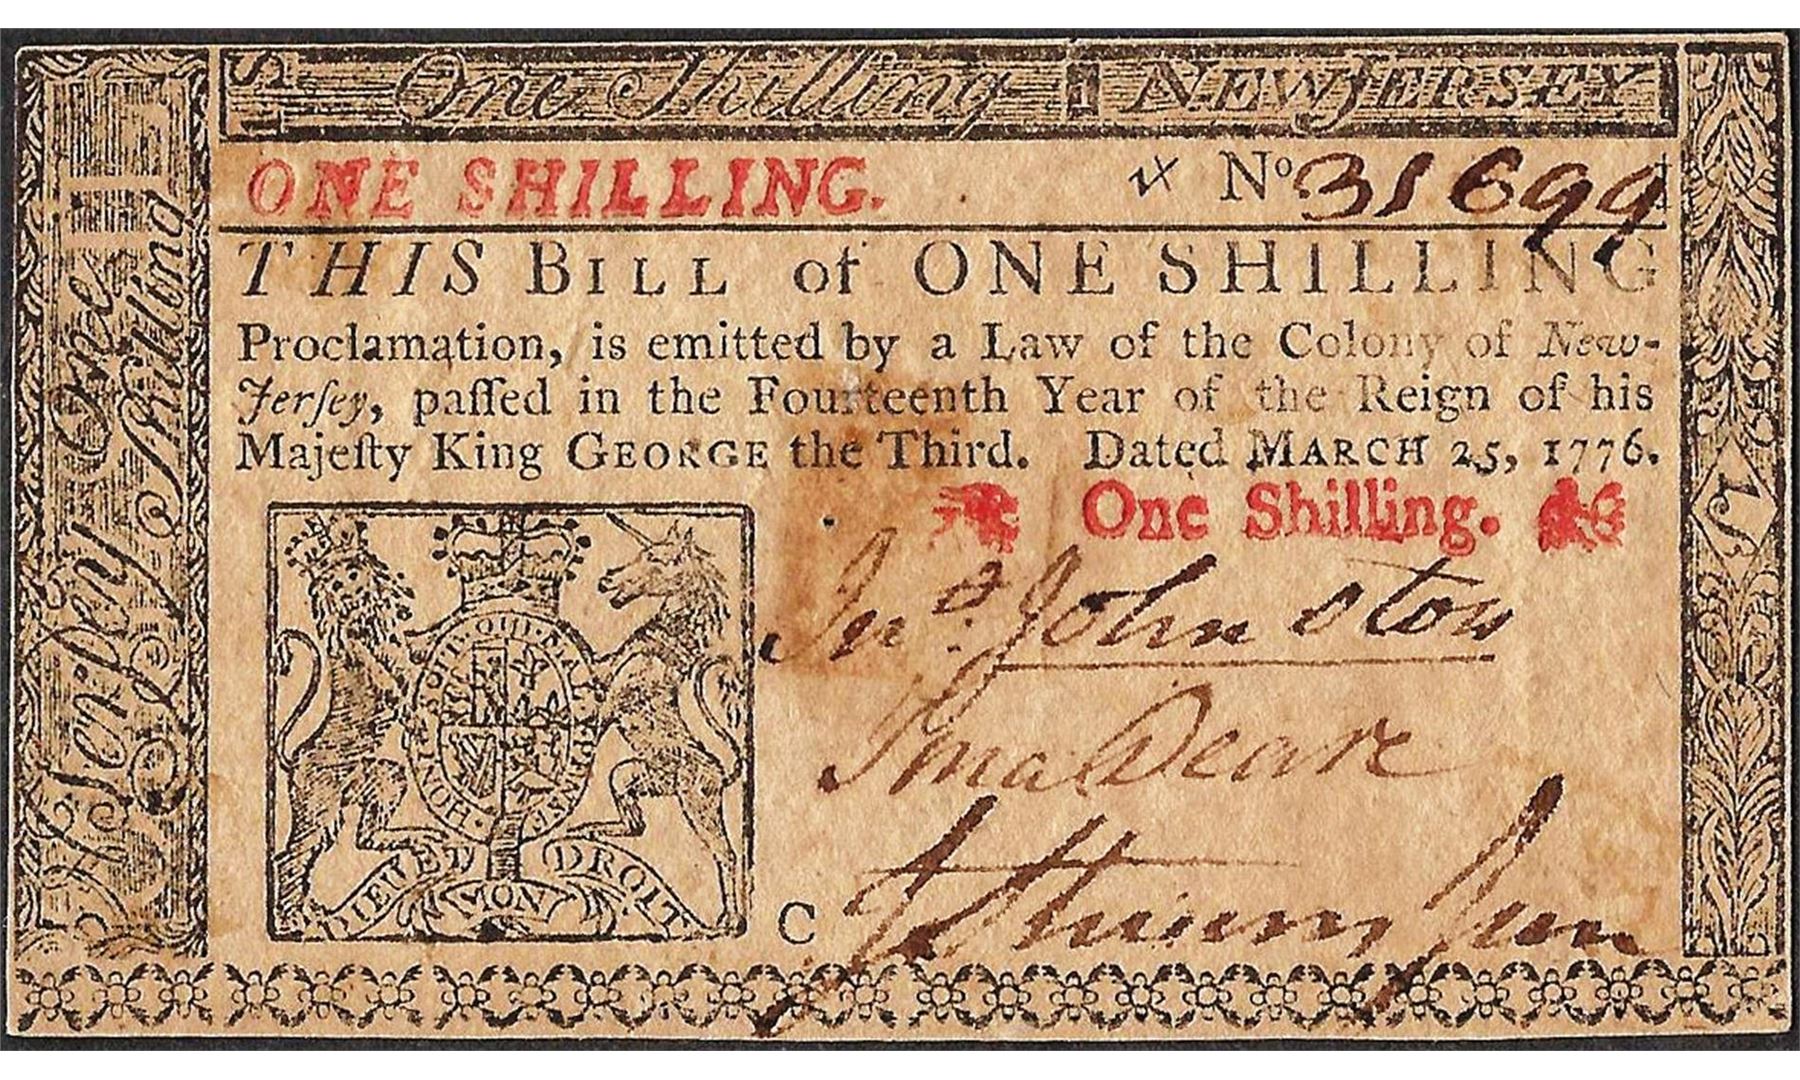 1S One Shilling 1 NEW JERSEY
ONE SHILLING. No 31699
THIS BILL of ONE SHILLING
Proclamation, is emitted by a Law of the Colony of New-
Jerſey, paſſed in the Fourteenth Year of the Reign of his
Majeſty King GEORGE the Third. Dated MARCH 25, 1776.
One Shilling.
Jno. Johnston
Smallwood
C
HONI SOIT QUI MAL Y PENSE
DIEU ET MON DROIT
One Shilling
1S